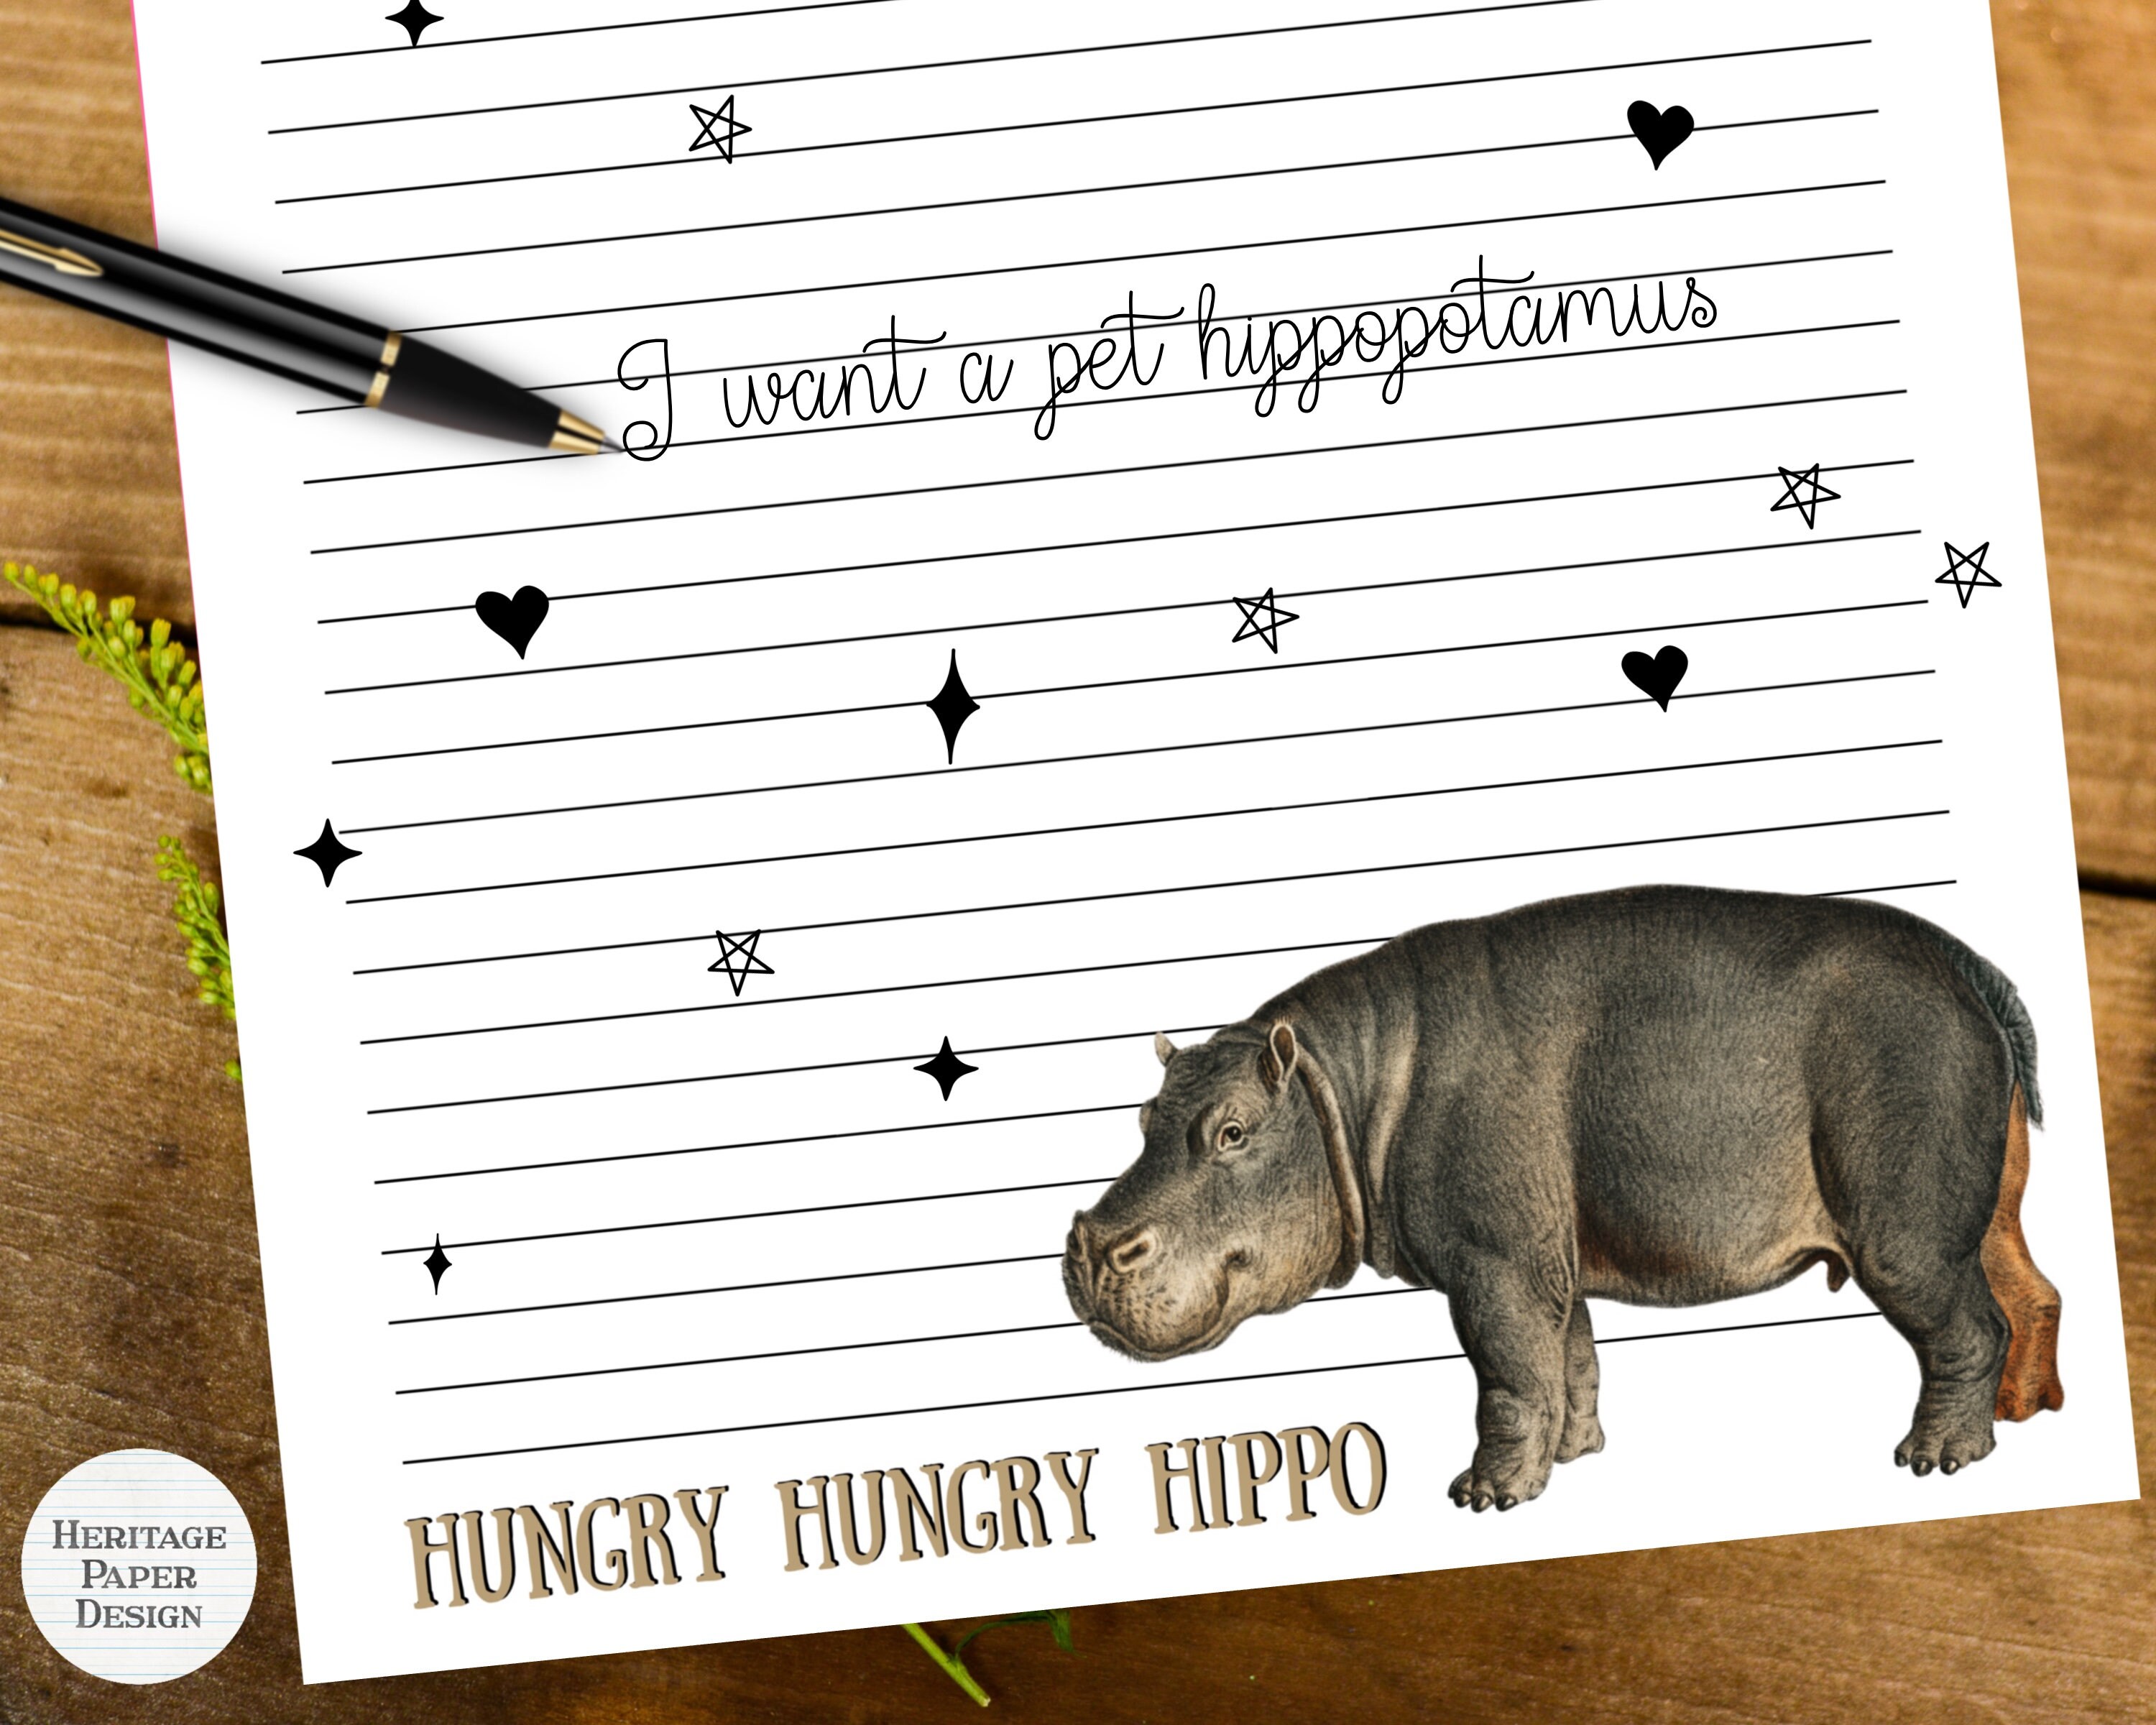 I want a pet hippopotamus
HUNGRY HUNGRY HIPPO
HERITAGE
PAPER
DESIGN